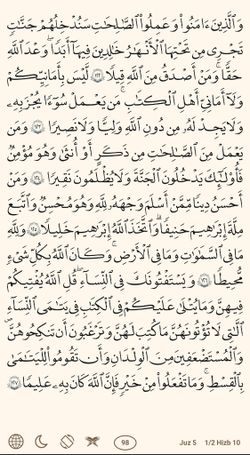 وَٱلَّذِينَ ءَامَنُوا۟ وَعَمِلُوا۟ ٱلصَّٰلِحَٰتِ سَنُدْخِلُهُمْ جَنَّٰتٍ
تَجْرِى مِن تَحْتِهَا ٱلْأَنْهَٰرُ خَٰلِدِينَ فِيهَآ أَبَدًا ۖ وَعْدَ ٱللَّهِ
حَقًّا ۚ وَمَنْ أَصْدَقُ مِنَ ٱللَّهِ قِيلًا ١٢٢ لَّيْسَ بِأَمَانِيِّكُمْ
وَلَآ أَمَانِىِّ أَهْلِ ٱلْكِتَٰبِ ۗ مَن يَعْمَلْ سُوٓءًا يُجْزَ بِهِۦ
وَلَا يَجِدْ لَهُۥ مِن دُونِ ٱللَّهِ وَلِيًّا وَلَا نَصِيرًا ١٢٣ وَمَن
يَعْمَلْ مِنَ ٱلصَّٰلِحَٰتِ مِن ذَكَرٍ أَوْ أُنثَىٰ وَهُوَ مُؤْمِنٌ
فَأُو۟لَٰٓئِكَ يَدْخُلُونَ ٱلْجَنَّةَ وَلَا يُظْلَمُونَ نَقِيرًا ١٢٤ وَمَنْ
أَحْسَنُ دِينًا مِّمَّنْ أَسْلَمَ وَجْهَهُۥ لِلَّهِ وَهُوَ مُحْسِنٌ وَٱتَّبَعَ
مِلَّةَ إِبْرَٰهِيمَ حَنِيفًا ۗ وَٱتَّخَذَ ٱللَّهُ إِبْرَٰهِيمَ خَلِيلًا ١٢٥ وَلِلَّهِ
مَا فِى ٱلسَّمَٰوَٰتِ وَمَا فِى ٱلْأَرْضِ ۚ وَكَانَ ٱللَّهُ بِكُلِّ شَىْءٍ
مُّحِيطًا ١٢٦ وَيَسْتَفْتُونَكَ فِى ٱلنِّسَآءِ ۖ قُلِ ٱللَّهُ يُفْتِيكُمْ
فِيهِنَّ وَمَا يُتْلَىٰ عَلَيْكُمْ فِى ٱلْكِتَٰبِ فِى يَتَٰمَى ٱلنِّسَآءِ
ٱلَّٰتِى لَا تُؤْتُونَهُنَّ مَا كُتِبَ لَهُنَّ وَتَرْغَبُونَ أَن تَنكِحُوهُنَّ
وَٱلْمُسْتَضْعَفِينَ مِنَ ٱلْوِلْدَٰنِ وَأَن تَقُومُوا۟ لِلْيَتَٰمَىٰ
بِٱلْقِسْطِ ۚ وَمَا تَفْعَلُوا۟ مِنْ خَيْرٍ فَإِنَّ ٱللَّهَ كَانَ بِهِۦ عَلِيمًا ١٢٧
98 Juz 5 1/2 Hizb 10